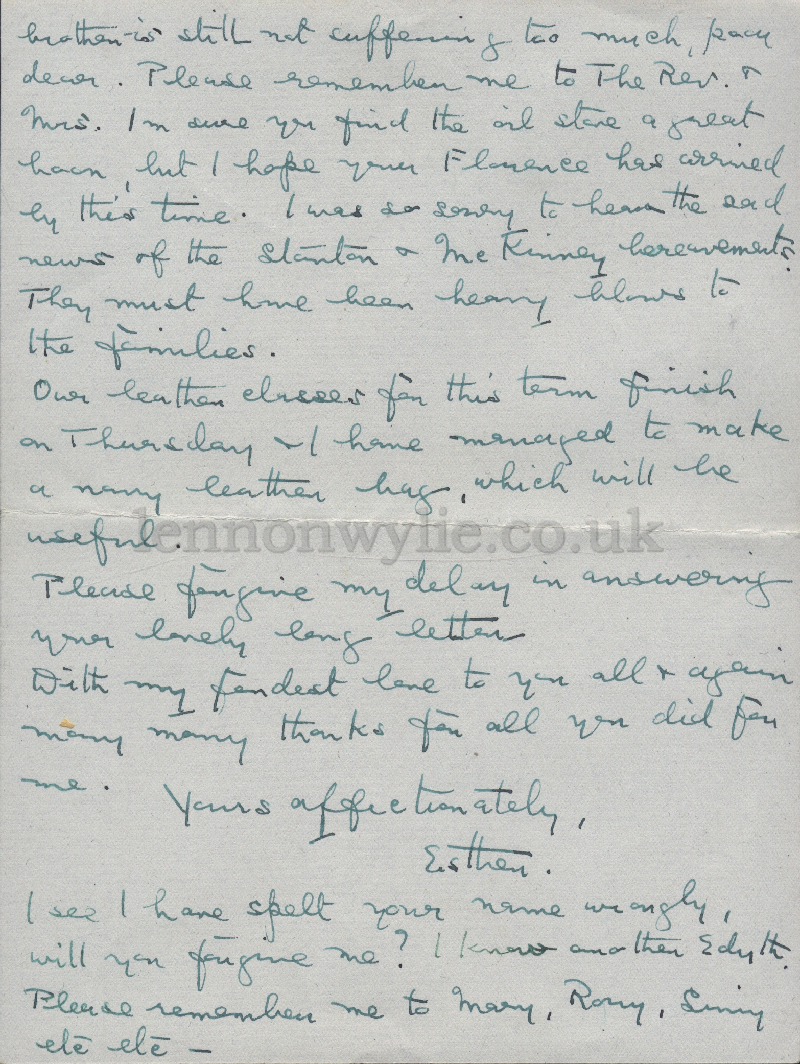 brother is still not suffering too much, poor
dear. Please remember me to The Rev. &
Mrs. I'm sure you find the oil stove a great
boon, but I hope your Florence has arrived
by this time. I was so sorry to hear the sad
news of the Stanton & McKinney bereavements.
They must have been heavy blows to
the families.
Our leather classes for this term finish
on Thursday & I have managed to make
a navy leather bag, which will be
useful.
lennonwylie.co.uk
Please forgive my delay in answering
your lovely long letter
With my fondest love to you all & again
many many thanks for all you did for
me.
Yours affectionately,
Esther.
I see I have spelt your name wrongly,
will you forgive me? I know another Edyth.
Please remember me to Mary, Rory,
etc etc —